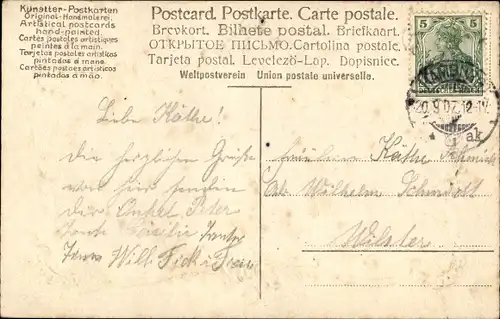 Künstler-Postkarten
Original-Handmalerei.
Artistical postcards
hand-painted.
Cartes postales artistiques
peintes à la main.
Tarjetas postales artisticos
pintadas á mano.
Cartões postaes artisticos
pintadas á mão.
Postcard. Postkarte. Carte postale.
Brevkort. Bilhete postal. Briefkaart.
ОТКРЫТОЕ ПИСЬМО. Cartolina postale.
Tarjeta postal. Levelező-Lap. Dopisnice.
Weltpostverein Union postale universelle.
5 5
HAMBURG
20.9.07. 12-1V.
ak
Liebe Käthe!
Die herzlichen Grüße
von hier senden
dir Onkel Peter
Tante Cäcilie Tante
Will
Fräulein Käthe
Wilhelm
Wilster